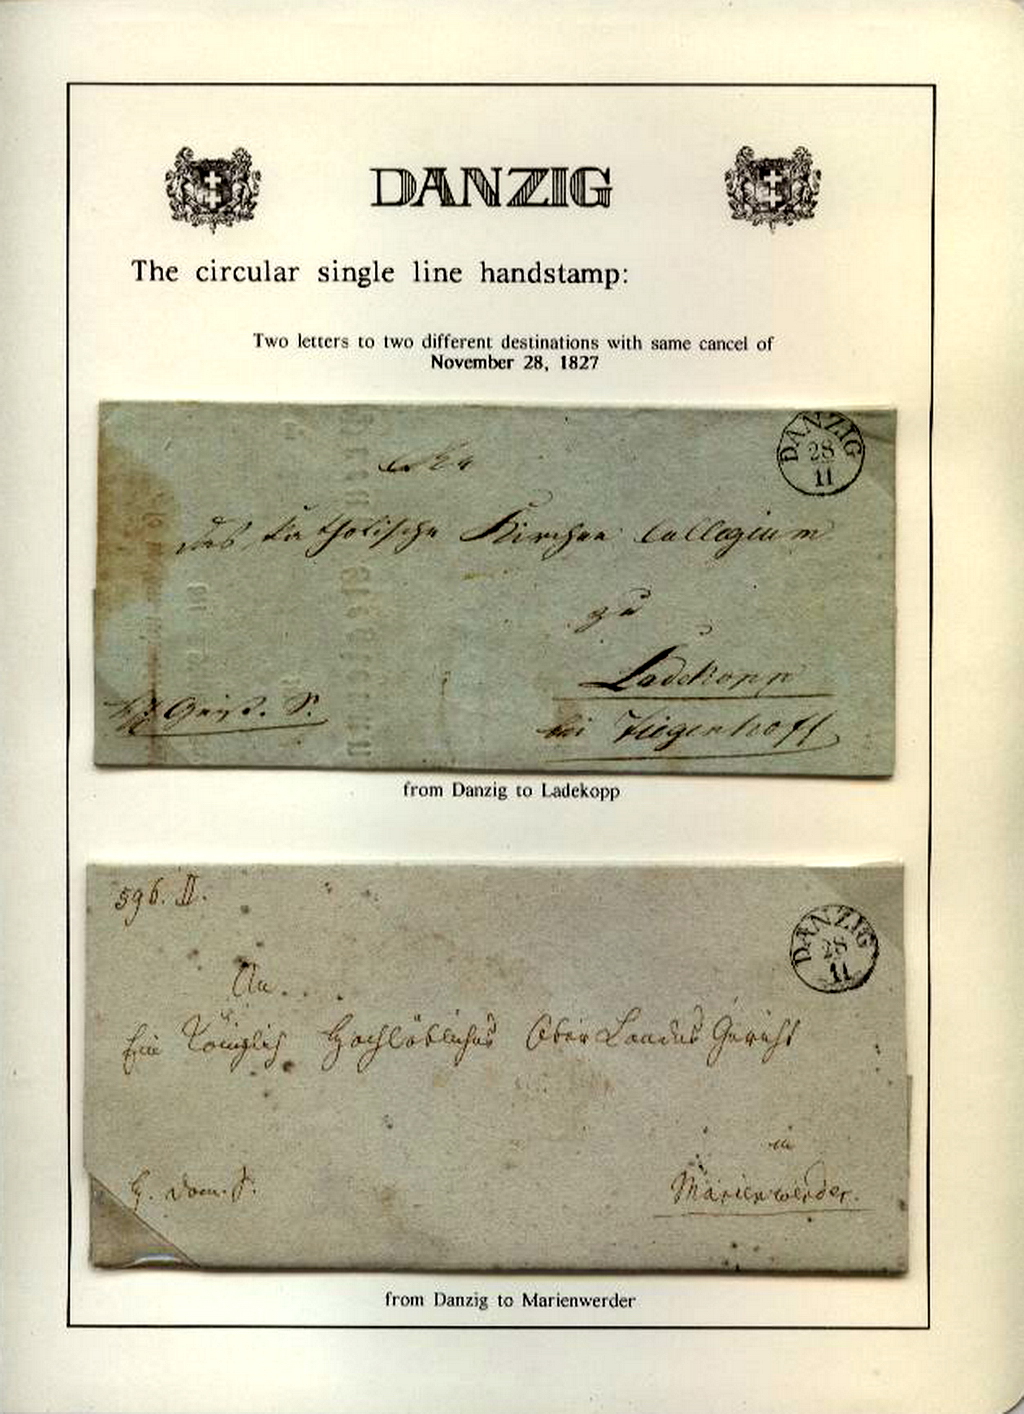 DANZIG
The circular single line handstamp:
Two letters to two different destinations with same cancel of
November 28, 1827
DANZIG
28
11
An
das Katholische Kirchen Collegium
zu
Ladekopp
bei Tiegenhoff
from Danzig to Ladekopp
596. II.
DANZIG
28
11
An
Ein Königlich Hochlöbliches Ober Landes Gericht
in
Marienwerder.
from Danzig to Marienwerder